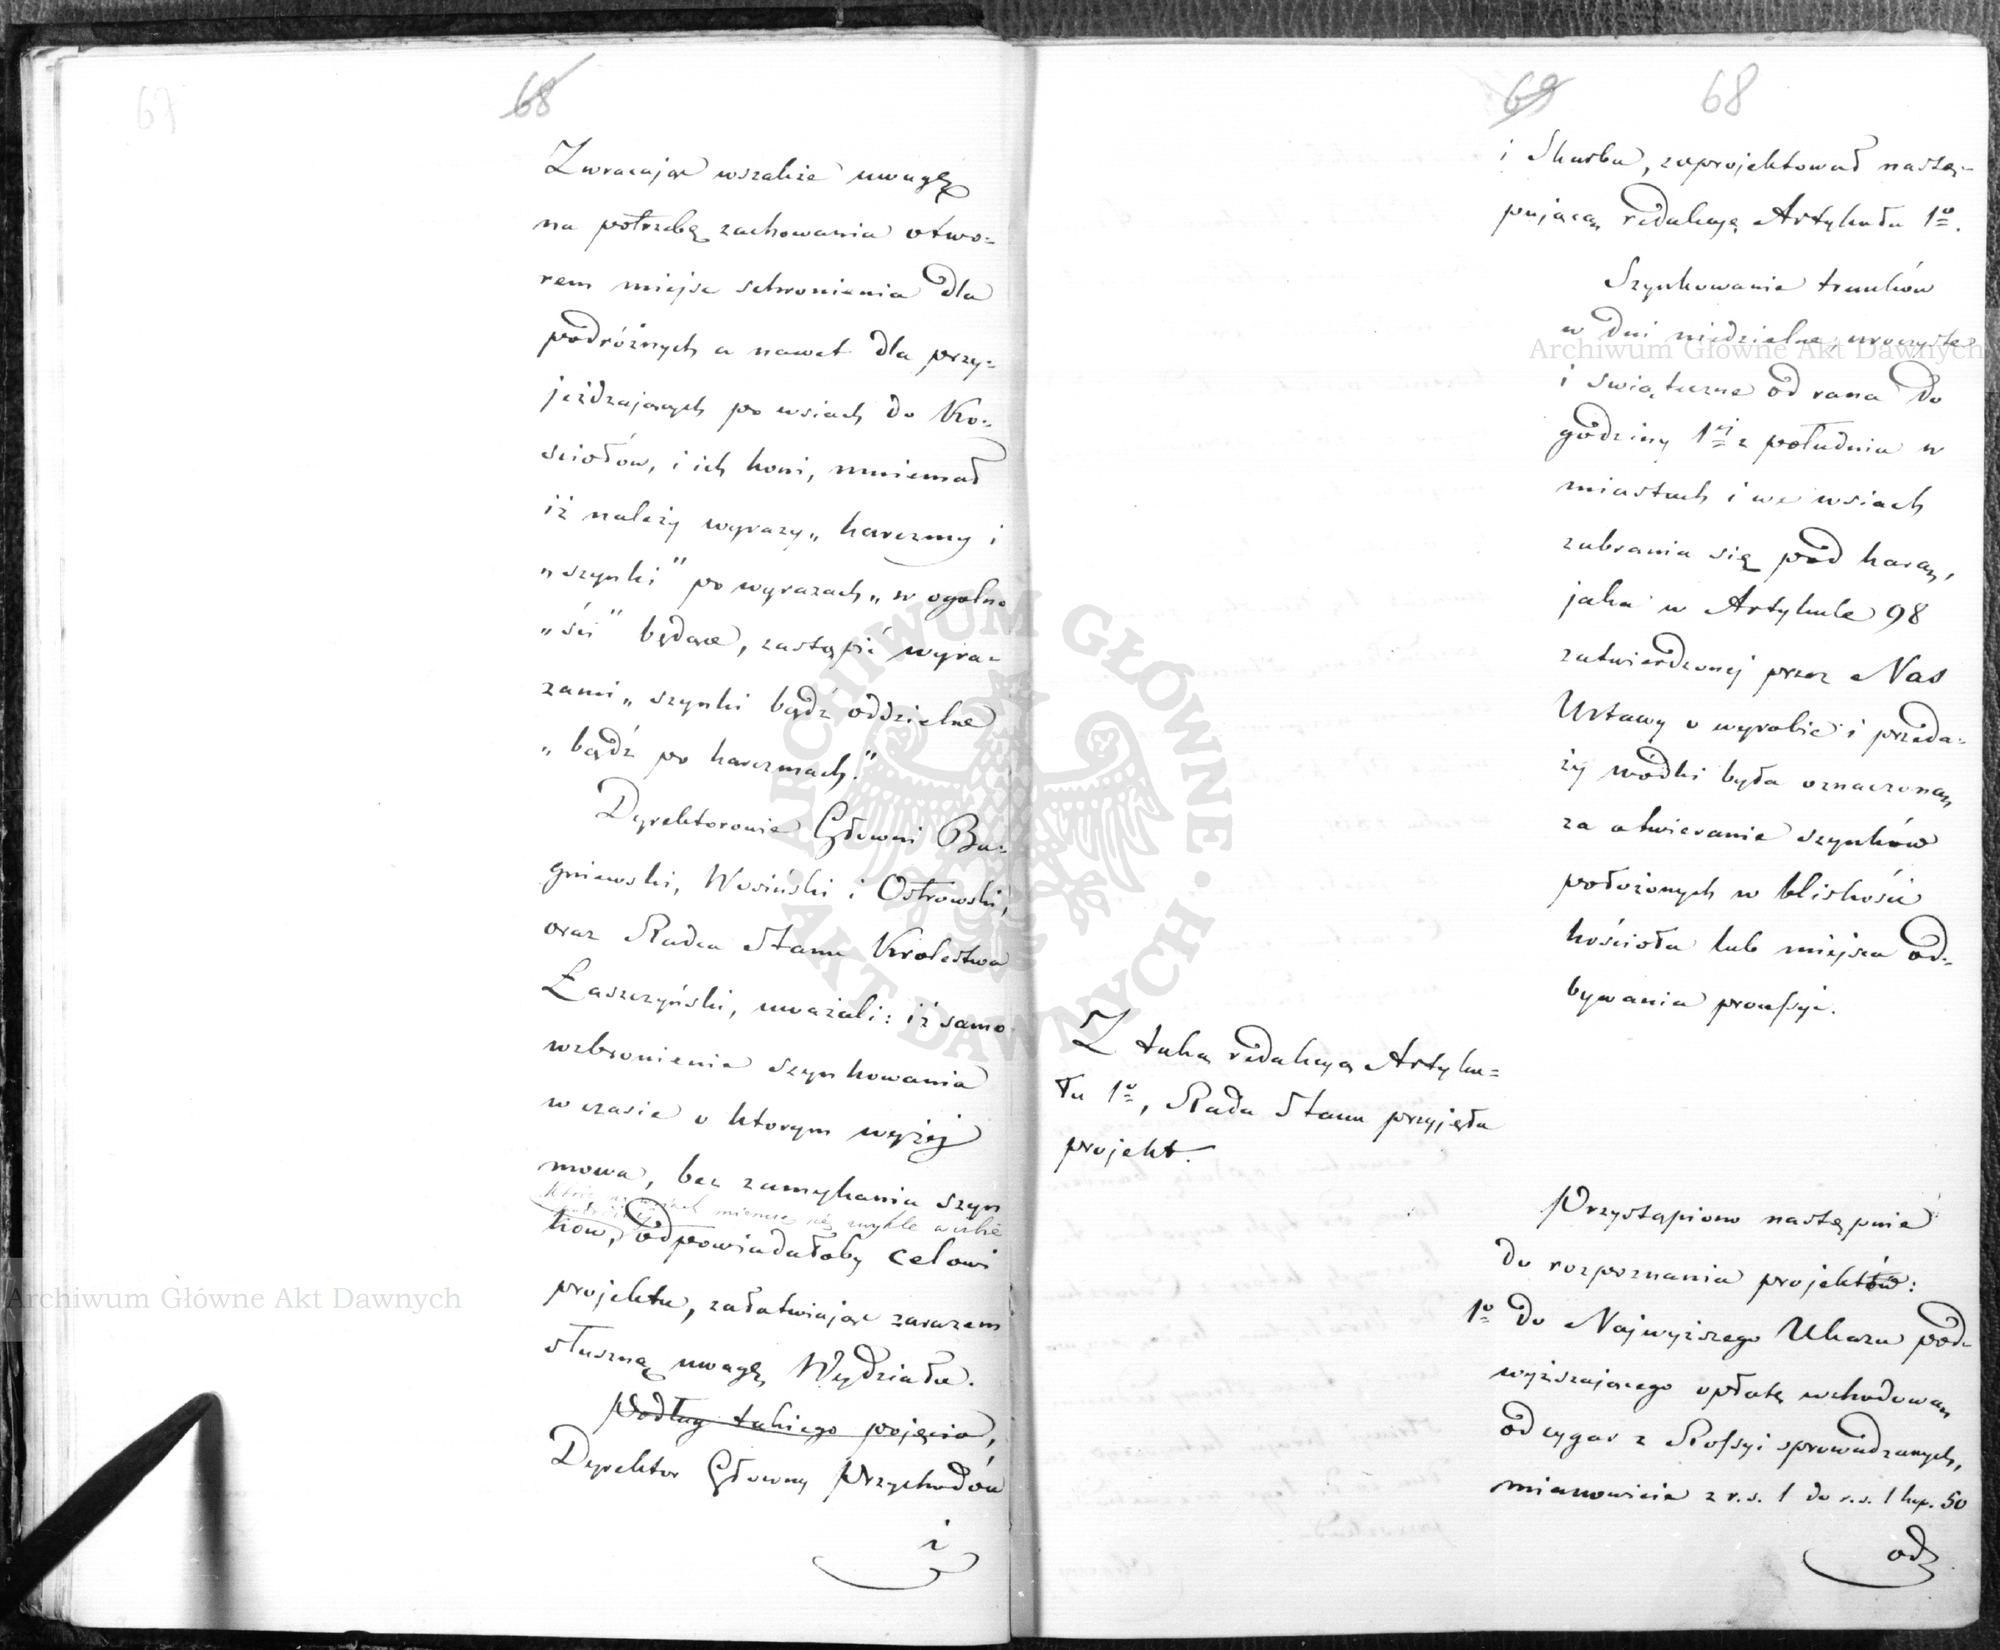 67
68
Zwracając wszakże uwagę
na potrzebę zachowania otwo-
rem miejsc schronienia dla
podróżnych a nawet dla przy-
jeżdzających po wsiach do Ko-
sciołów, i ich koni, mniemał
iż należy wyrazy „karczmy i
„szynki" po wyrazach „w ogolno
„ści" będące, zastąpić wyra-
zami „szynki bądź oddzielne
„bądź po karczmach."
Dyrektorowie Główni Ba-
gniewski, Wosiński i Ostrowski,
oraz Radca Stanu Krolestwa
Łaszczyński, uważali: iż samo
wzbronienie szynkowania
w czasie o ktorym wyżej
mowa, bez zamykania szyn
ków, odpowiadałoby celowi
projektu, załatwiając zarazem
słuszną uwagę Wydziału.
Podług takiego pojęcia,
Dyrektor Główny Przychodów
i
69
68
i Skarbu, zaprojektował nastę-
pującą redakcyą Artykułu 1º.
Szynkowanie trunków
w dni niedzielne, uroczyste
i swiąteczne od rana do
godziny 1ej z południa w
miastach i we wsiach
zabrania się pod karą,
jaka w Artykule 98
zatwierdzonej przez Nas
Ustawy o wyrobie i przeda-
ży wódki była oznaczoną,
za otwieranie szynków
położonych w bliskości
kościoła lub miejsca od-
bywania processyi.
Z taką redakcyą Artyku-
łu 1º, Rada Stanu przyjęła
projekt.
Przystąpiono następnie
do rozpoznania projektów:
1º do Najwyższego Ukazu pod-
wyższającego opłatę wchodową
od cygar z Rossyi sprowadzanych,
mianowicie z r.s. 1 do r.s. 1 kop. 50
od
Archiwum Główne Akt Dawnych
Archiwum Główne Akt Dawnych
ARCHIWUM GŁÓWNE AKT DAWNYCH